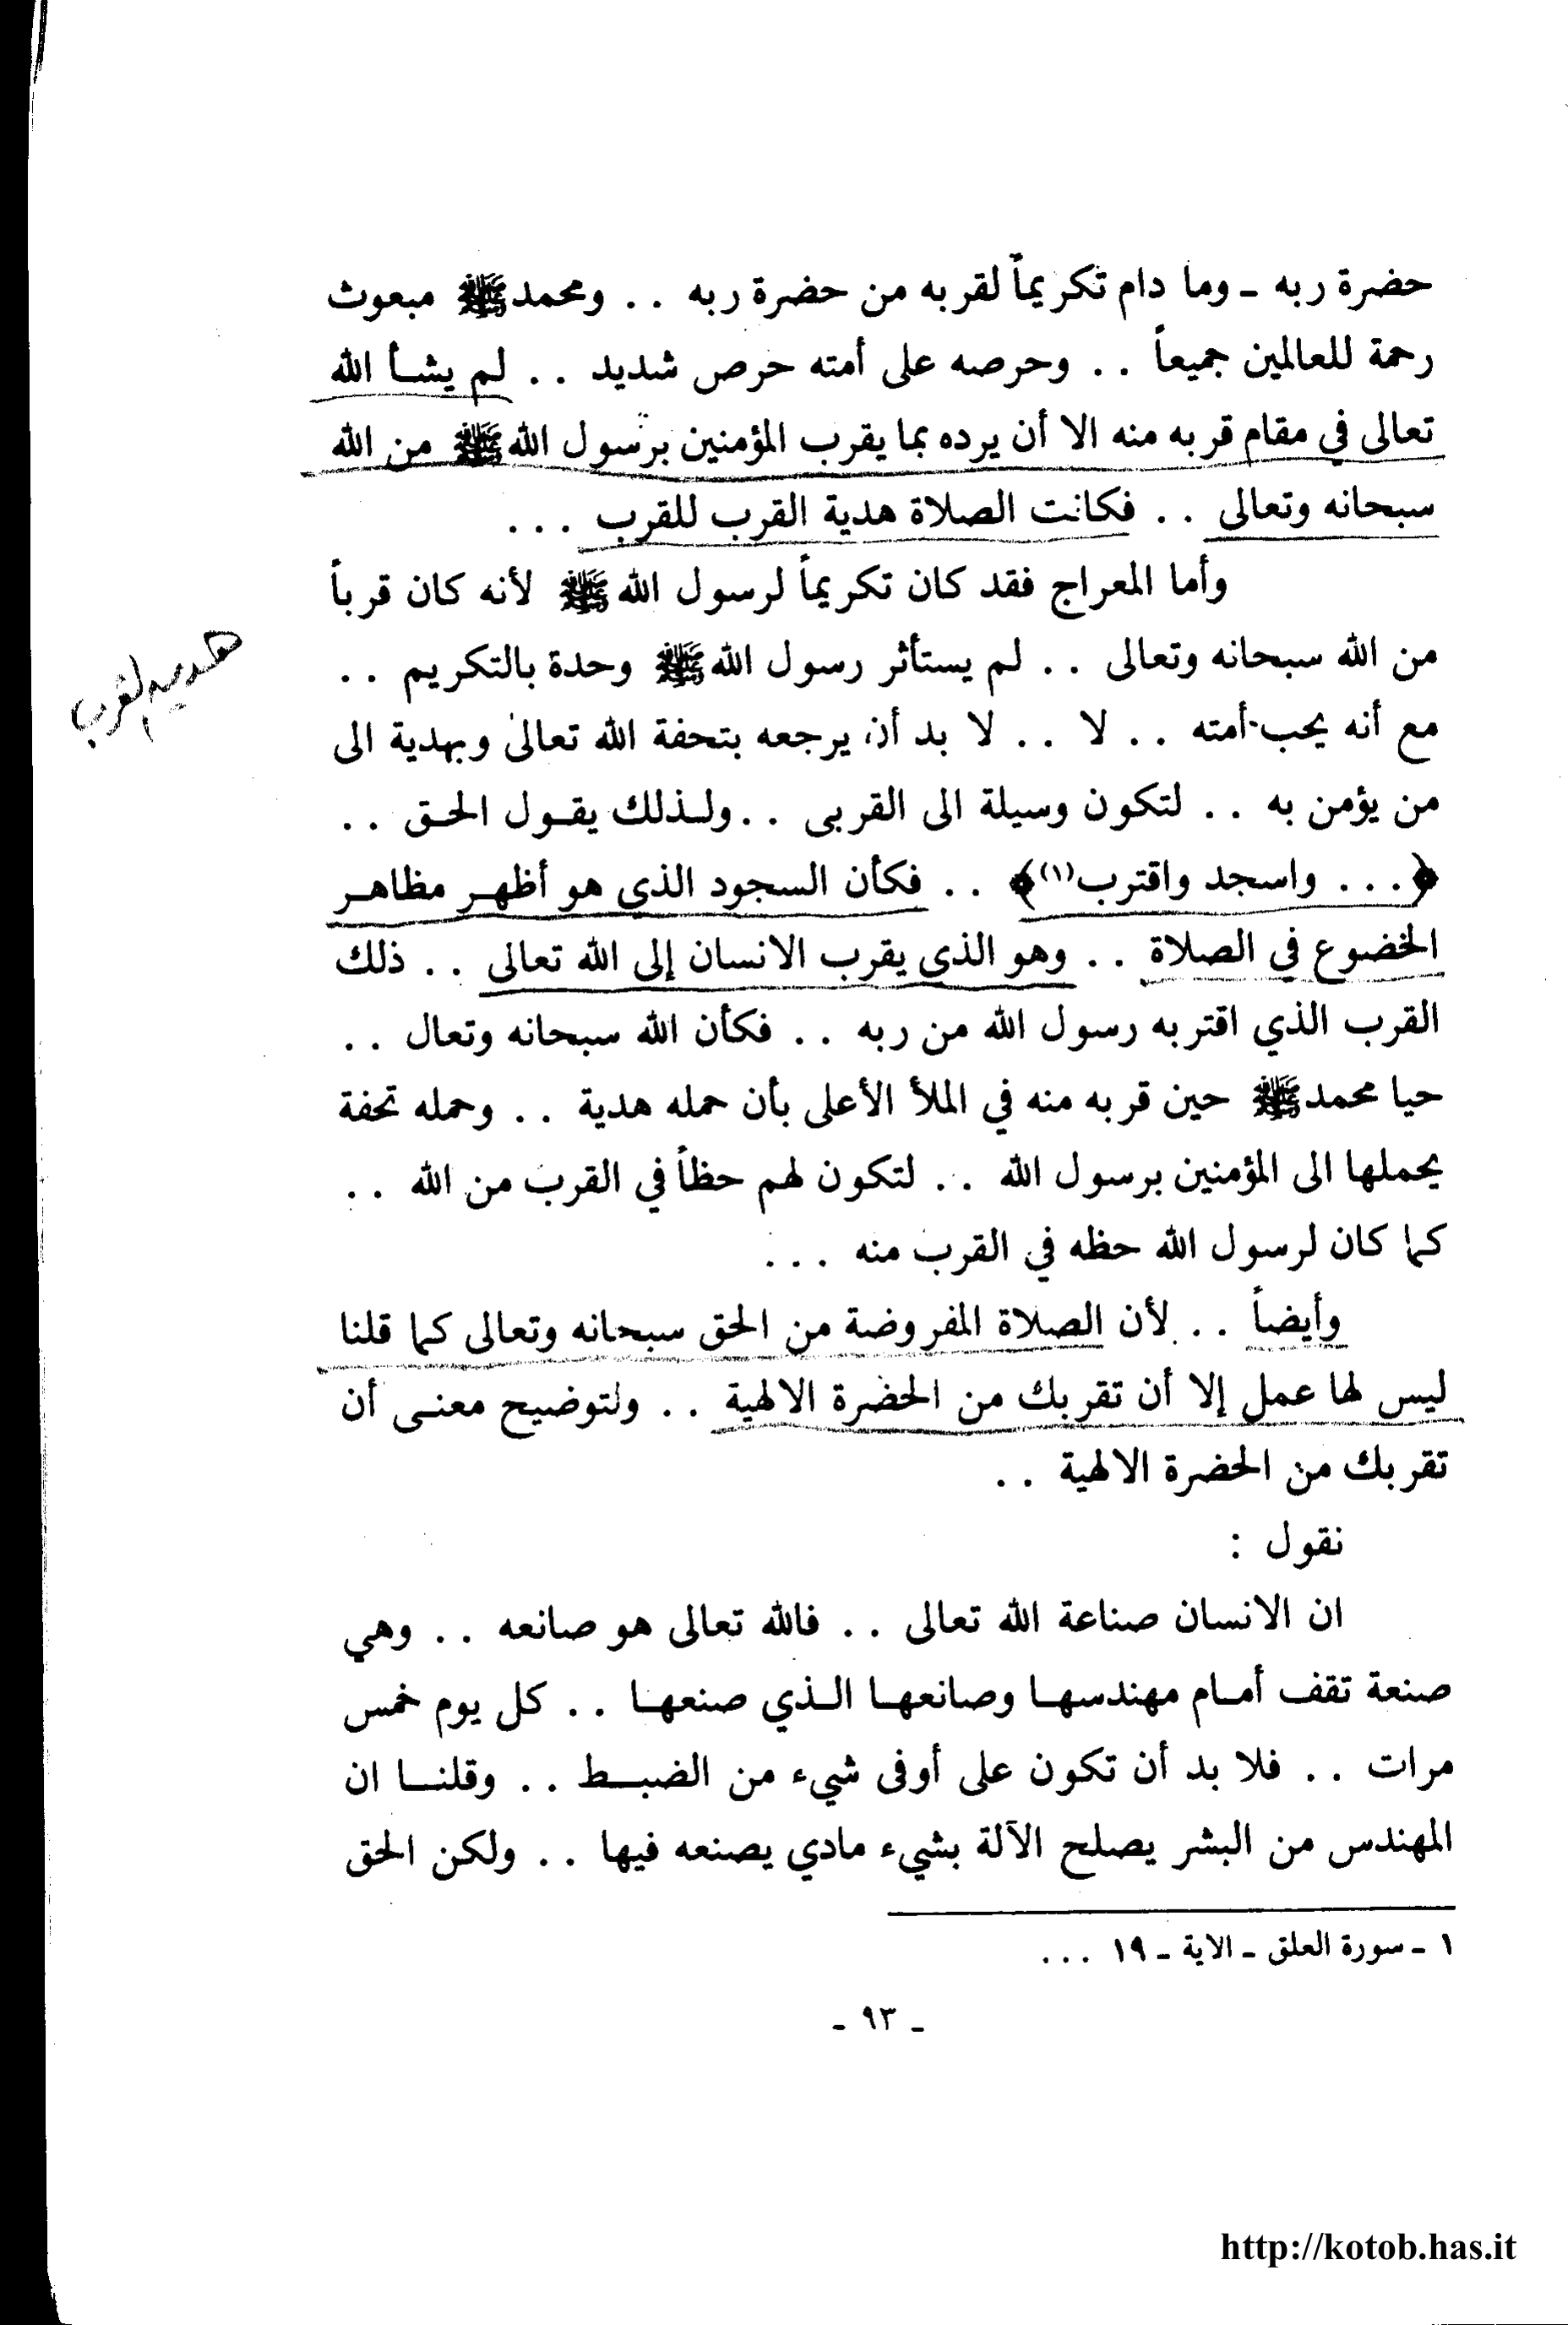 حضرة ربه ـ وما دام تكريماً لقربه من حضرة ربه . . ومحمد ﷺ مبعوث
رحمة للعالمين جميعاً . . وحرصه على أمته حرص شديد . . لم يشأ الله
تعالى في مقام قربه منه الا أن يرده بما يقرب المؤمنين برسول الله ﷺ من الله
سبحانه وتعالى . . فكانت الصلاة هدية القرب للقرب . . .
وأما المعراج فقد كان تكريماً لرسول الله ﷺ لأنه كان قرباً
من الله سبحانه وتعالى . . لم يستأثر رسول الله ﷺ وحدة بالتكريم . .
مع أنه يحب أمته . . لا . . لا بد أن يرجعه بتحفة الله تعالى وبهدية الى
من يؤمن به . . لتكون وسيلة الى القربى . . ولذلك يقول الحق . .
﴿ . . . واسجد واقترب(١)﴾ . . فكأن السجود الذي هو أظهر مظاهر
الخضوع في الصلاة . . وهو الذي يقرب الانسان إلى الله تعالى . . ذلك
القرب الذي اقتربه رسول الله من ربه . . فكأن الله سبحانه وتعال . .
حيا محمد ﷺ حين قربه منه في الملأ الأعلى بأن حمله هدية . . وحمله تحفة
يحملها الى المؤمنين برسول الله . . لتكون لهم حظاً في القرب من الله . .
كما كان لرسول الله حظه في القرب منه . . .
وأيضاً . . لأن الصلاة المفروضة من الحق سبحانه وتعالى كما قلنا
ليس لها عمل إلا أن تقربك من الحضرة الالهية . . ولتوضيح معنى أن
تقربك من الحضرة الالهية . .
نقول :
ان الانسان صناعة الله تعالى . . فالله تعالى هو صانعه . . وهي
صنعة تقف أمام مهندسها وصانعها الذي صنعها . . كل يوم خمس
مرات . . فلا بد أن تكون على أوفى شيء من الضبط . . وقلنا ان
المهندس من البشر يصلح الآلة بشيء مادي يصنعه فيها . . ولكن الحق
١ ـ سورة العلق ـ الاية ـ ١٩ . . .
ـ ٩٣ ـ
هدية القرب
http://kotob.has.it